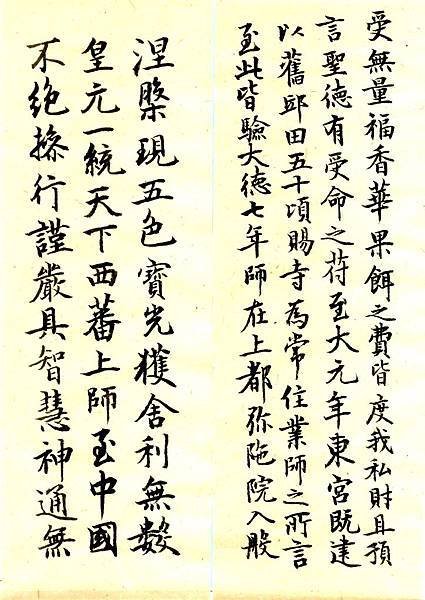 受無量福香華果餌之費皆度我私財且預
言聖德有受命之符至大元年東宮既建
以舊邸田五十頃賜寺為常住業師之所言
至此皆驗大德七年師在上都弥陁院入般
涅槃現五色寶光獲舍利無數
皇元一統天下西蕃上師至中國
不絕操行謹嚴具智慧神通無